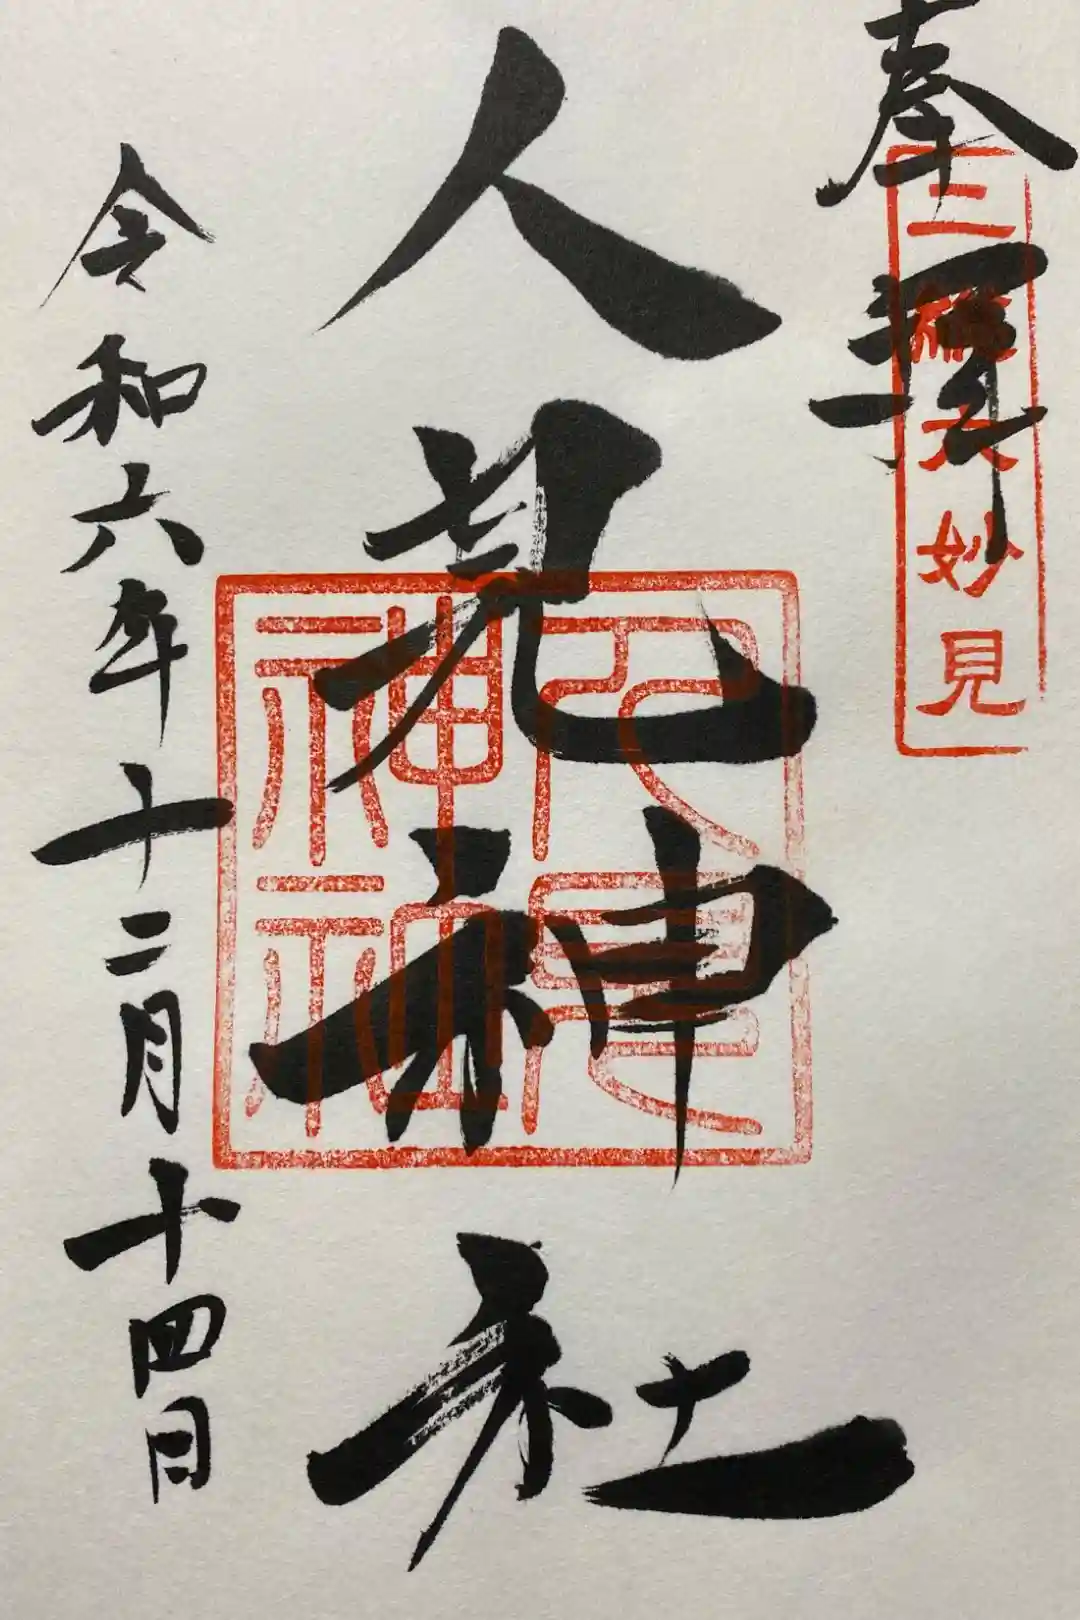 奉拝
妙見
人見神社
人見神社
令和六年十二月十四日